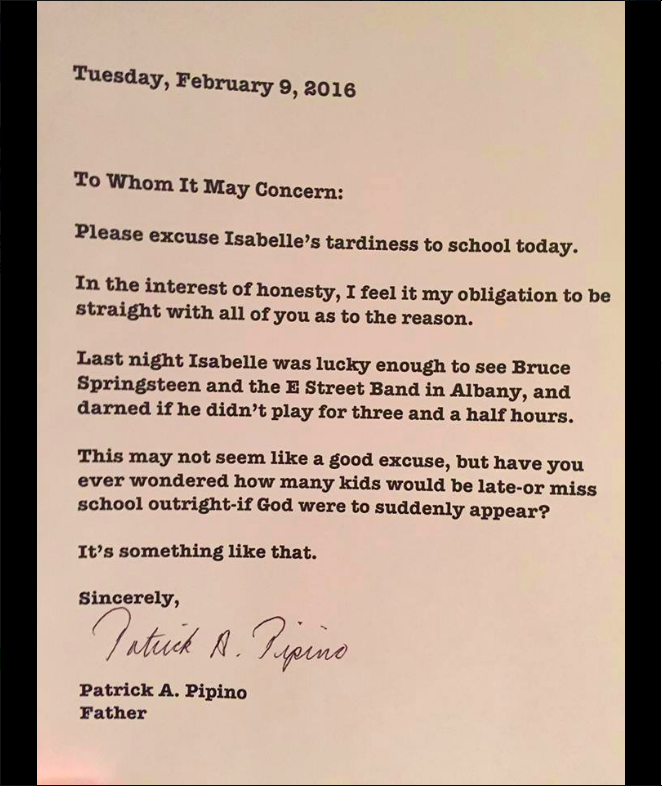 Tuesday, February 9, 2016
To Whom It May Concern:
Please excuse Isabelle's tardiness to school today.
In the interest of honesty, I feel it my obligation to be
straight with all of you as to the reason.
Last night Isabelle was lucky enough to see Bruce
Springsteen and the E Street Band in Albany, and
darned if he didn't play for three and a half hours.
This may not seem like a good excuse, but have you
ever wondered how many kids would be late-or miss
school outright-if God were to suddenly appear?
It's something like that.
Sincerely,
Patrick A. Pipino
Patrick A. Pipino
Father